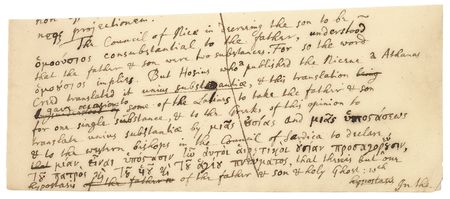 nesq projectionem.
The Council of Nice in decreeing the son to be
ὁμοούσιος consubstantial to the father, understood
that the father & son were two substances. For so the word
ὁμοούσιος implies. But Hosius who published the Nicene & Athanas
Creed translated it unius substantiæ, & this translation being
gave occasion to some of the Latines to take the father & son
for one single substance, & to the Greeks of this opinion to
translate unius substantiæ by μιᾶς οὐσίας and μιᾶς ὑποστάσεως
& to the western bishops in the Council of Sardica to declare,
that μίαν εἶναι ὑπόστασιν ἣν αὐτοὶ αἱρετικοὶ οὐσίαν προσαγορεύουσιν,
τοῦ πατρὸς καὶ τοῦ υἱοῦ καὶ τοῦ ἁγίου πνεύματος, that there is but one
hypostasis of the father & son & holy Ghost: wch
hypostasis In the